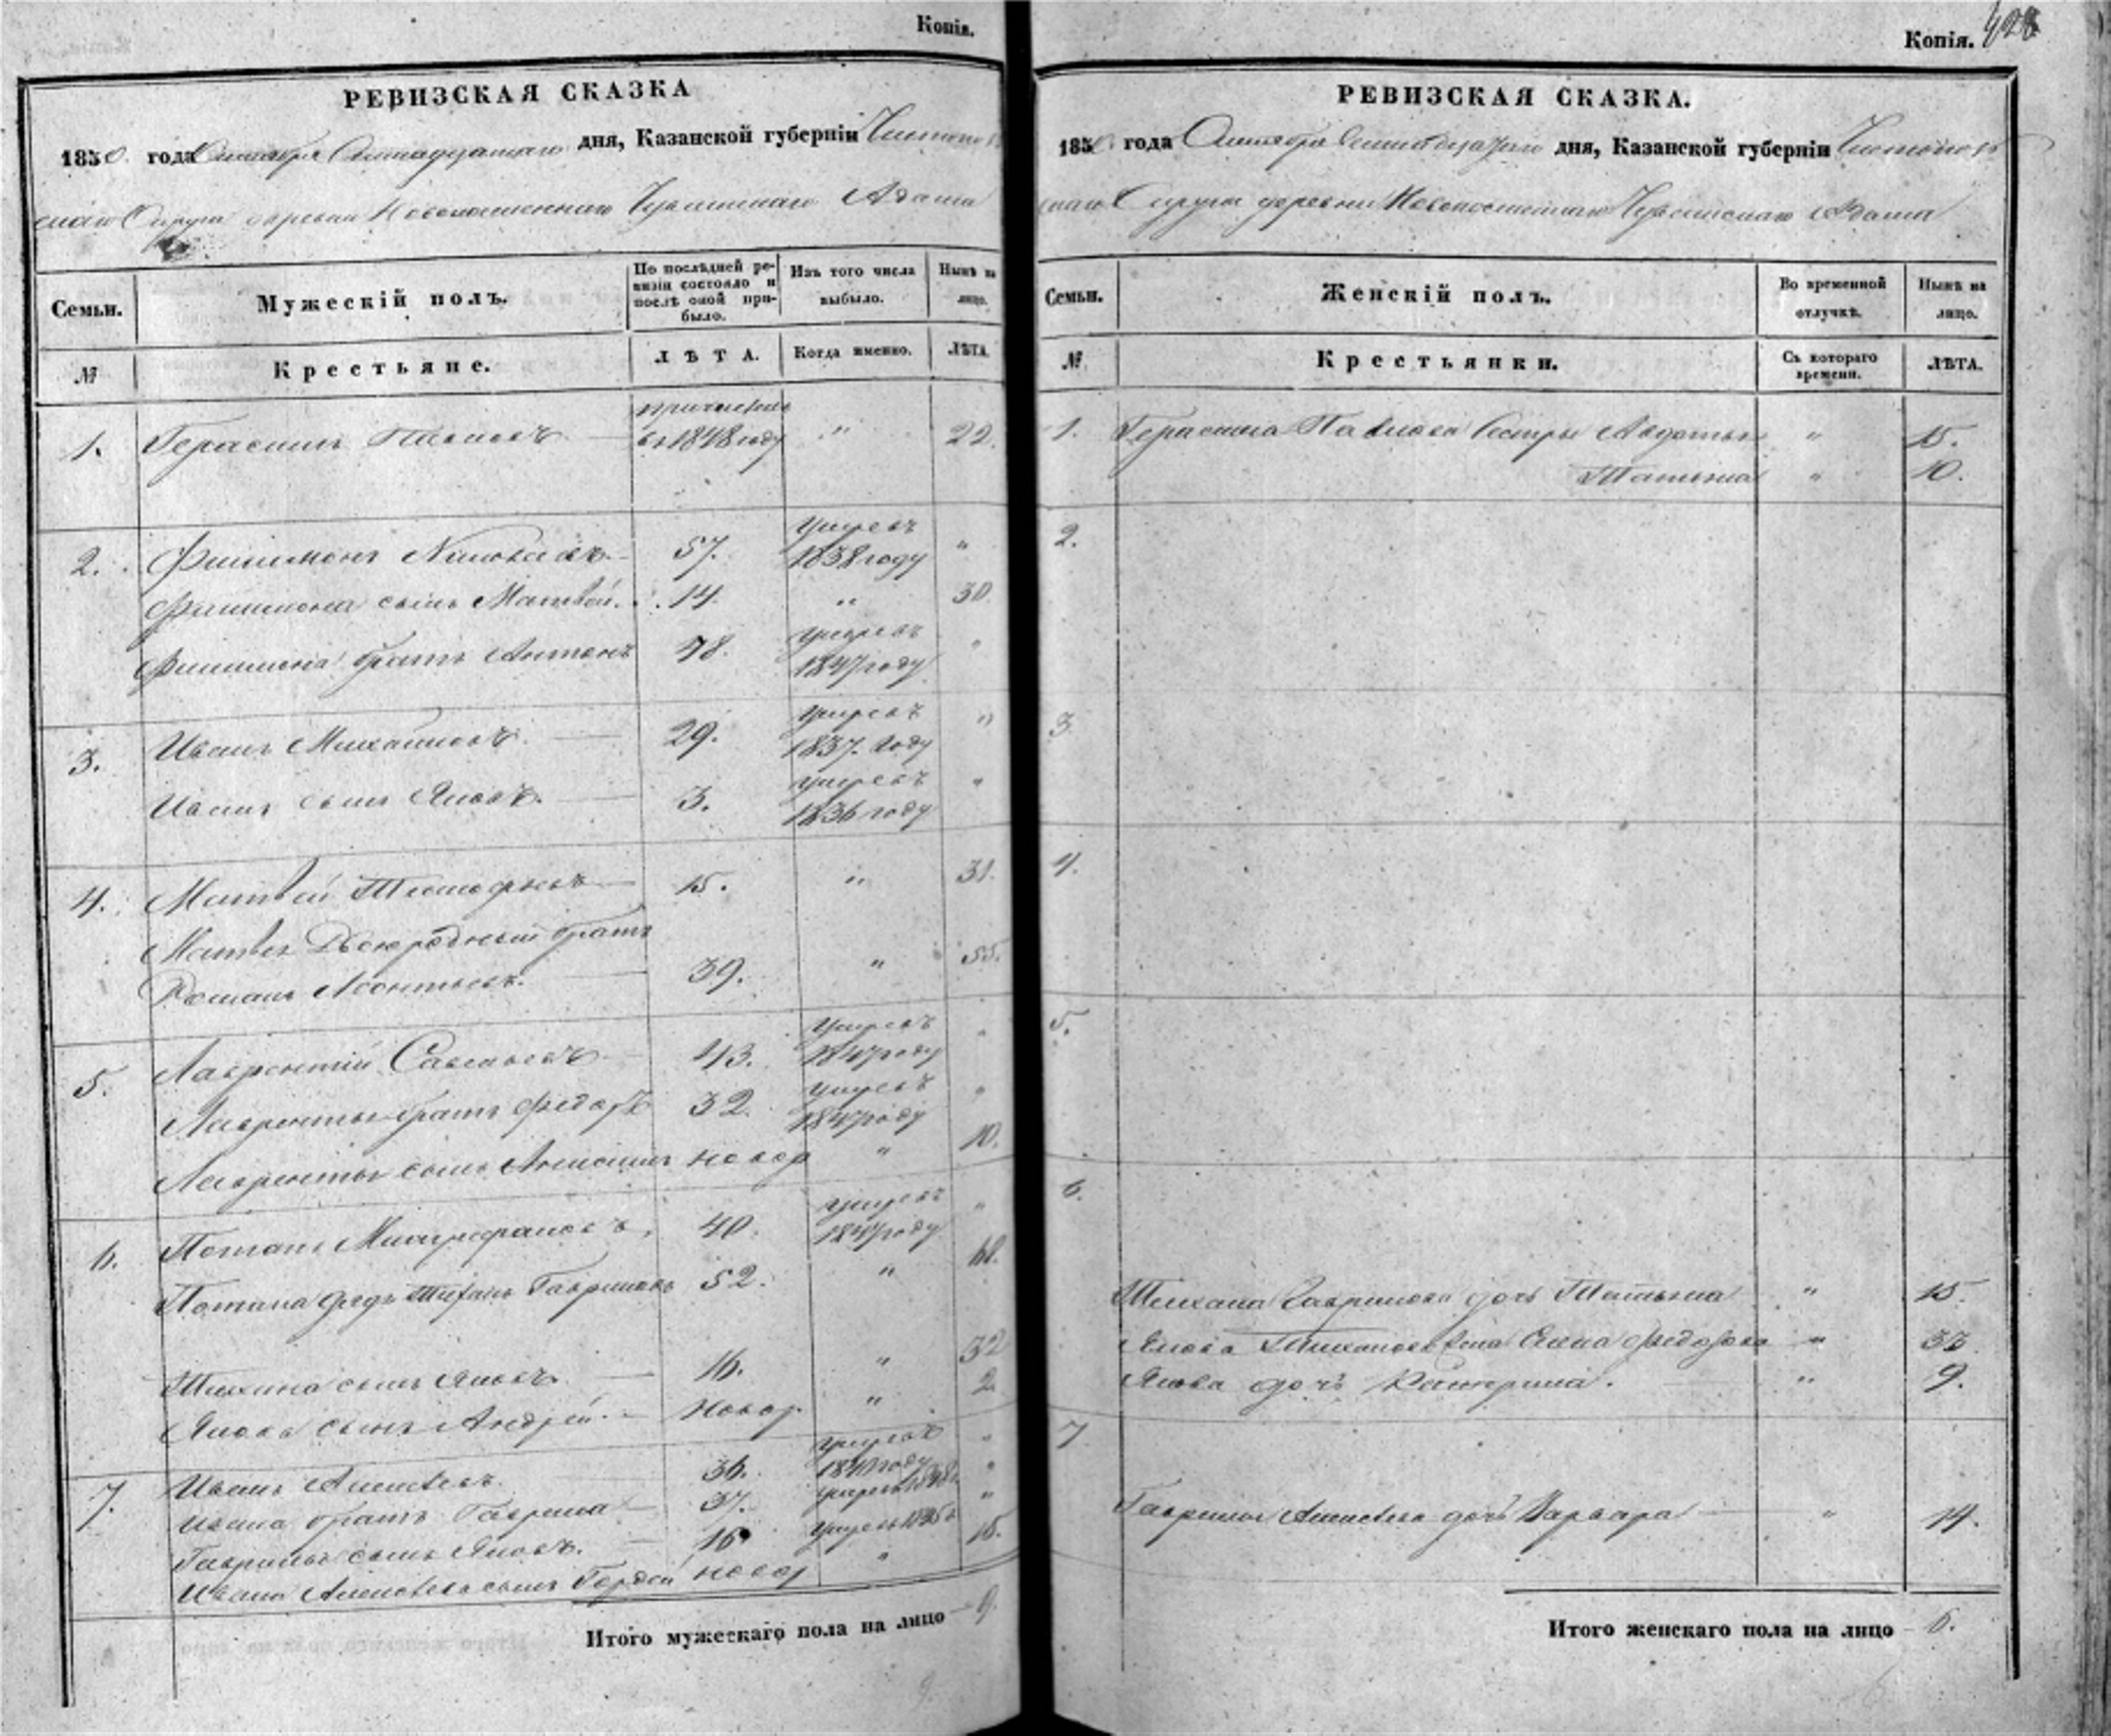 Копія.
РЕВИЗСКАЯ СКАЗКА
1850. года Октября дня, Казанской губерніи Чистополь
скаго Округа деревни Новопосшеннаго Чувашскаго Адама
Семьи.
Мужескій полъ.
По послѣдней ре-
визіи состояло и
послѣ оной при-
было.
Изъ того числа
выбыло.
Нынѣ на
лицо.
№
Крестьяне.
ЛѢТА.
Когда именно.
ЛѢТА.
1. Герасимъ Павловъ. въ 1848 году " 22.
2. Филимонъ 57. умревъ 1838 году "
Филимона сынъ Матвѣй. 14. " 30.
Филимона братъ Антонъ 48. умревъ 1847 году "
3. Иванъ Михайловъ. 29. умревъ 1837. году "
Ивана сынъ Яковъ. 3. умревъ 1836 году "
4. Матвѣй Тимофѣевъ 15. " 31.
Матвѣя Двоюродный братъ
Романъ Леонтьевъ. 39. " 55.
5. Лаврентій Савельевъ 43. умревъ 1847 году "
Лаврентья братъ Федоръ 32. умревъ 1847 году "
Лаврентья сынъ новор " 10.
6. Потапъ Митрофановъ. 40. умревъ 1847 году "
Потапа дядя Тиханъ Гавриловъ 52. " 68.
Тихана сынъ Яковъ. 16. " 32
Якова сынъ Андрей. новор. " 2.
7. Иванъ Алексѣевъ. 36. умревъ году "
Ивана братъ Гаврила 37. умревъ "
Гаврилы сынъ Яковъ. 16. умревъ "
Ивана Алексѣева сынъ Гордѣй новор " 15.
Итого мужескаго пола на лицо 9.
Копія. 428
РЕВИЗСКАЯ СКАЗКА.
1850 года Октября дня, Казанской губерніи Чистополь
скаго Округа деревни Новопосшеннаго Чувашскаго Адама
Семьи.
Женскій полъ.
Во временной
отлучкѣ.
Нынѣ на
лицо.
№
Крестьянки.
Съ котораго
времени.
ЛѢТА.
1. Герасима Павлова Сестры Авдотья " 15.
Татьяна " 10.
2.
3
4.
5.
6.
Тихана Гаврилова дочь Татьяна " 15.
Якова Тиханова жена Анна Федорова " 32.
Якова дочь Катерина. " 9.
7
Гаврилы Алексѣева дочь Варвара " 14.
Итого женскаго пола на лицо 6.